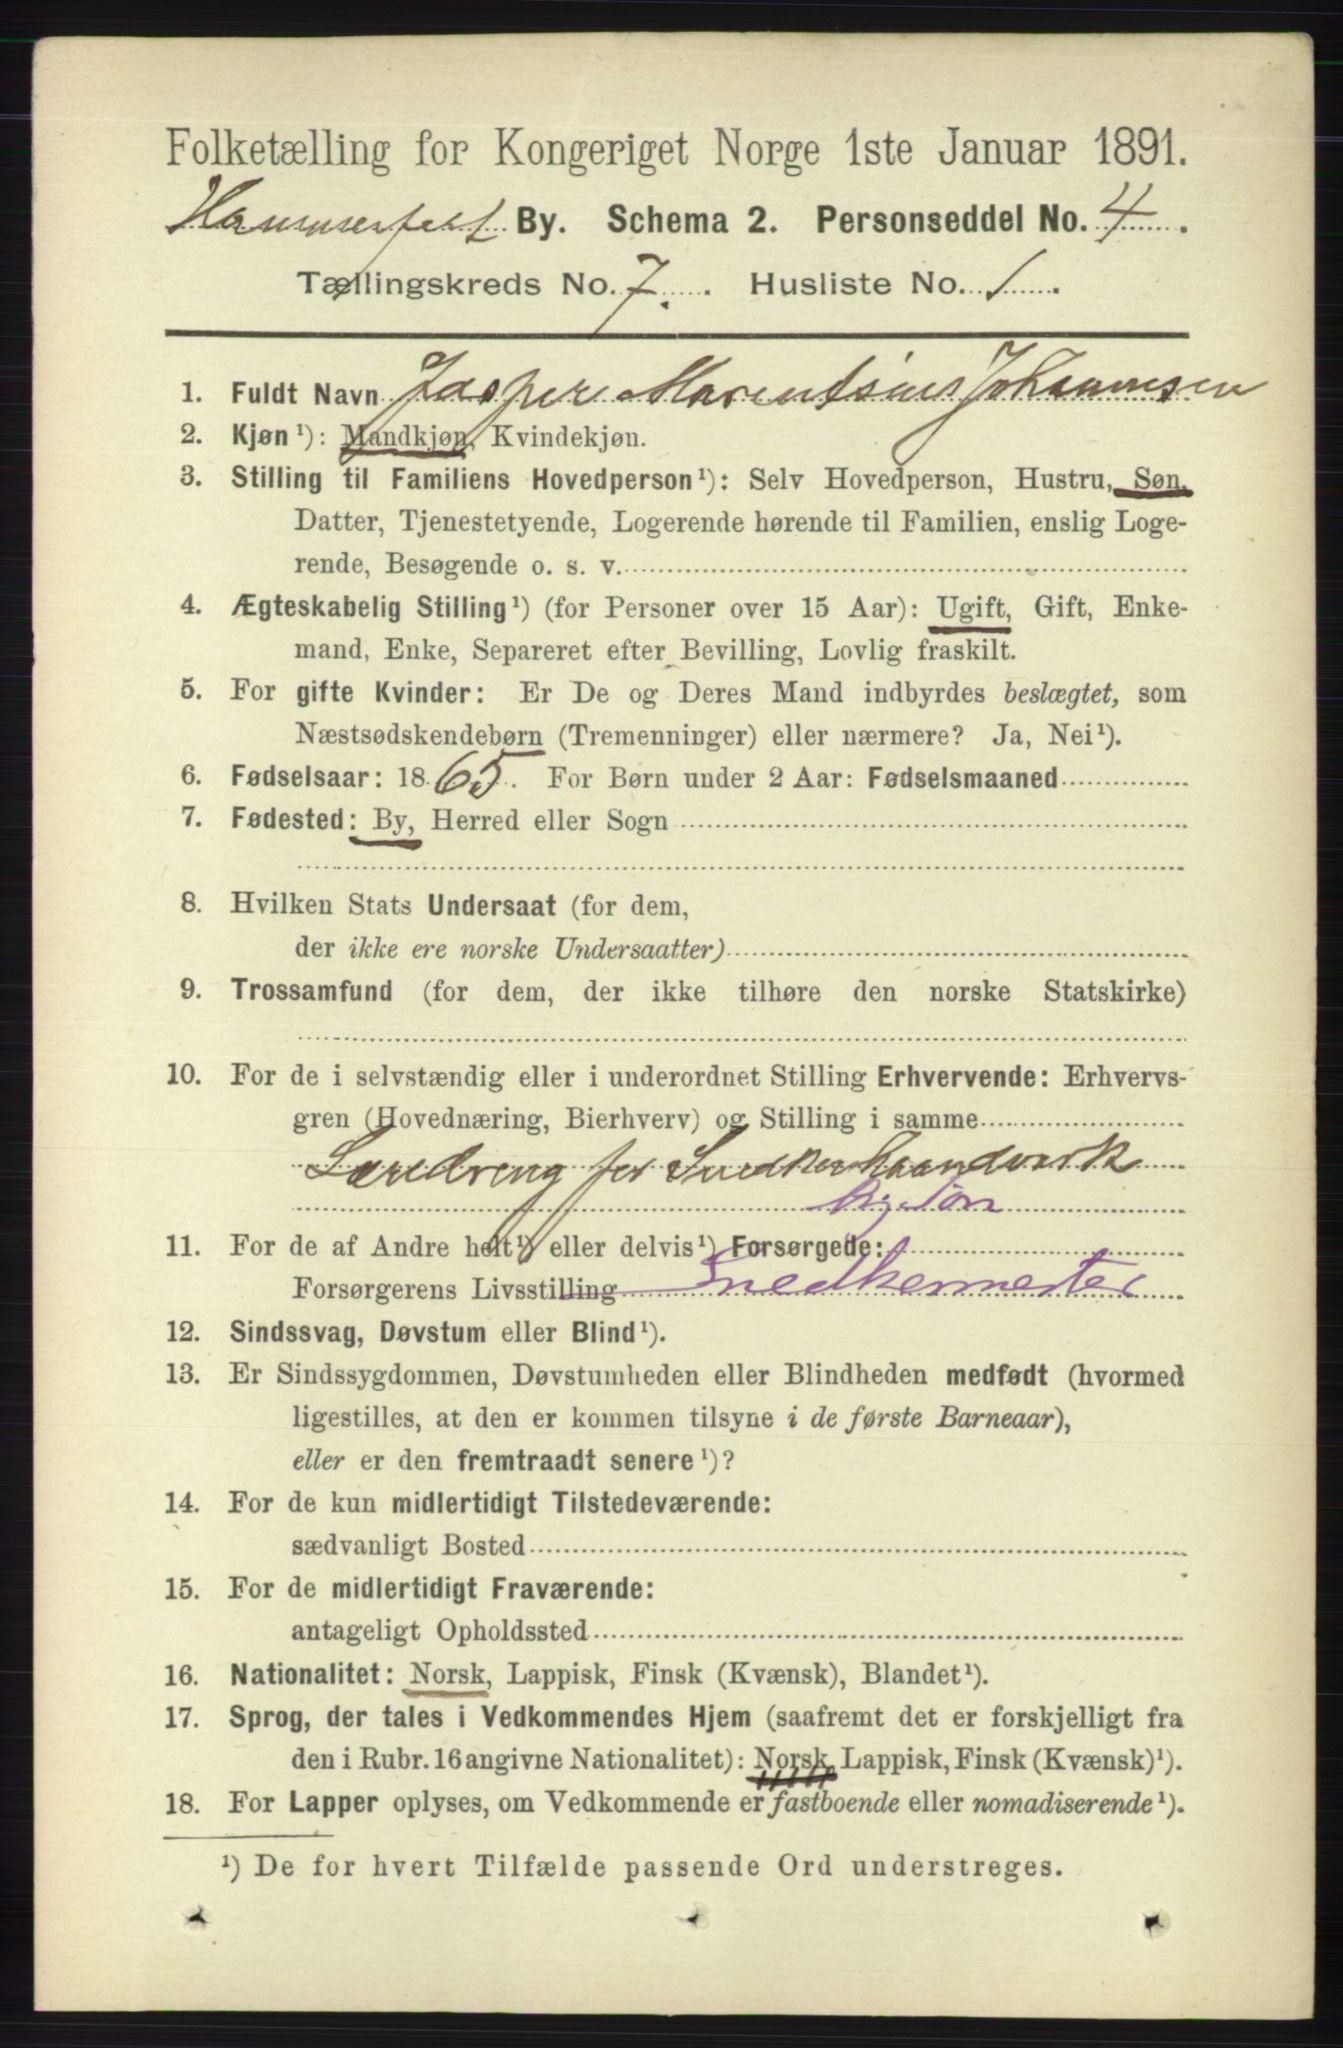 Folketælling for Kongeriget Norge 1ste Januar 1891.
Hammerfest By. Schema 2. Personseddel No. 4.
Tællingskreds No. 7. Husliste No. 1.
1. Fuldt Navn Jasper Marentsius Johannsen
2. Kjøn¹): Mandkjøn, Kvindekjøn.
3. Stilling til Familiens Hovedperson¹): Selv Hovedperson, Hustru, Søn,
Datter, Tjenestetyende, Logerende hørende til Familien, enslig Loge-
rende, Besøgende o. s. v.
4. Ægteskabelig Stilling¹) (for Personer over 15 Aar): Ugift, Gift, Enke-
mand, Enke, Separeret efter Bevilling, Lovlig fraskilt.
5. For gifte Kvinder: Er De og Deres Mand indbyrdes beslægtet, som
Næstsødskendebørn (Tremenninger) eller nærmere? Ja, Nei¹).
6. Fødselsaar: 1865. For Børn under 2 Aar: Fødselsmaaned
7. Fødested: By, Herred eller Sogn
8. Hvilken Stats Undersaat (for dem,
der ikke ere norske Undersaatter)
9. Trossamfund (for dem, der ikke tilhøre den norske Statskirke)
10. For de i selvstændig eller i underordnet Stilling Erhvervende: Erhvervs-
gren (Hovednæring, Bierhverv) og Stilling i samme
Læredreng for Snedkerhaandverk
11. For de af Andre helt¹) eller delvis¹) Forsørgede:
Forsørgerens Livsstilling Snedkermester
12. Sindssvag, Døvstum eller Blind¹).
13. Er Sindssygdommen, Døvstumheden eller Blindheden medfødt (hvormed
ligestilles, at den er kommen tilsyne i de første Barneaar),
eller er den fremtraadt senere¹)?
14. For de kun midlertidigt Tilstedeværende:
sædvanligt Bosted
15. For de midlertidigt Fraværende:
antageligt Opholdssted
16. Nationalitet: Norsk, Lappisk, Finsk (Kvænsk), Blandet¹).
17. Sprog, der tales i Vedkommendes Hjem (saafremt det er forskjelligt fra
den i Rubr. 16 angivne Nationalitet): Norsk, Lappisk, Finsk (Kvænsk)¹).
18. For Lapper oplyses, om Vedkommende er fastboende eller nomadiserende¹).
¹) De for hvert Tilfælde passende Ord understreges.